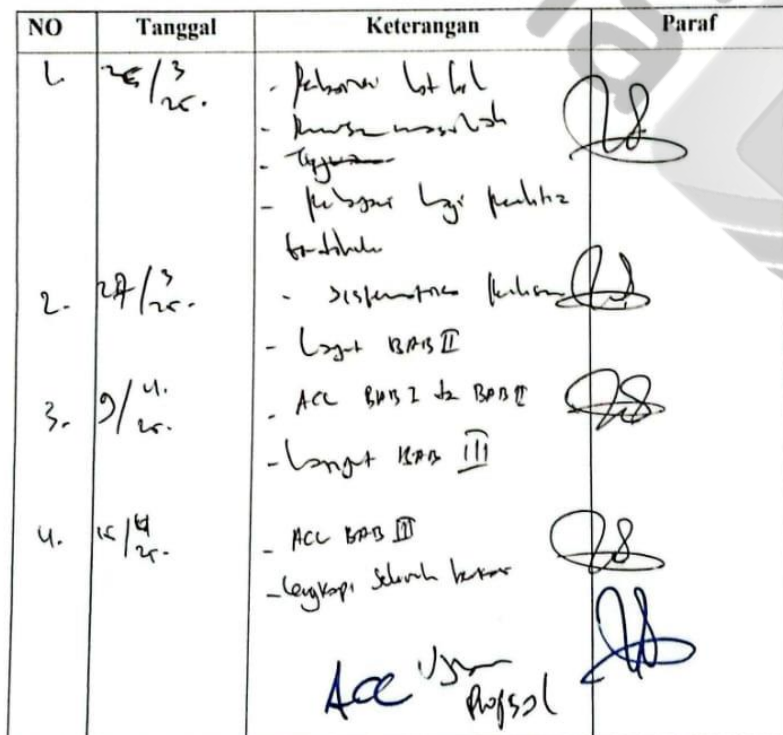 NO Tanggal Keterangan Paraf
1. 26/3 25. - Perbaiki lat bel
- Rumusan masalah
- Tujuan
- Pelajari lagi peneliti
terdahulu
2. 27/3 25. - Sistematika
- Lanjut BAB II
3. 9/4. 25. - ACC BAB I da BAB II
- Lanjut BAB III
4. 15/4 25. - ACC BAB III
- Lengkapi seluruh berkas
ACC Ujian
Proposal